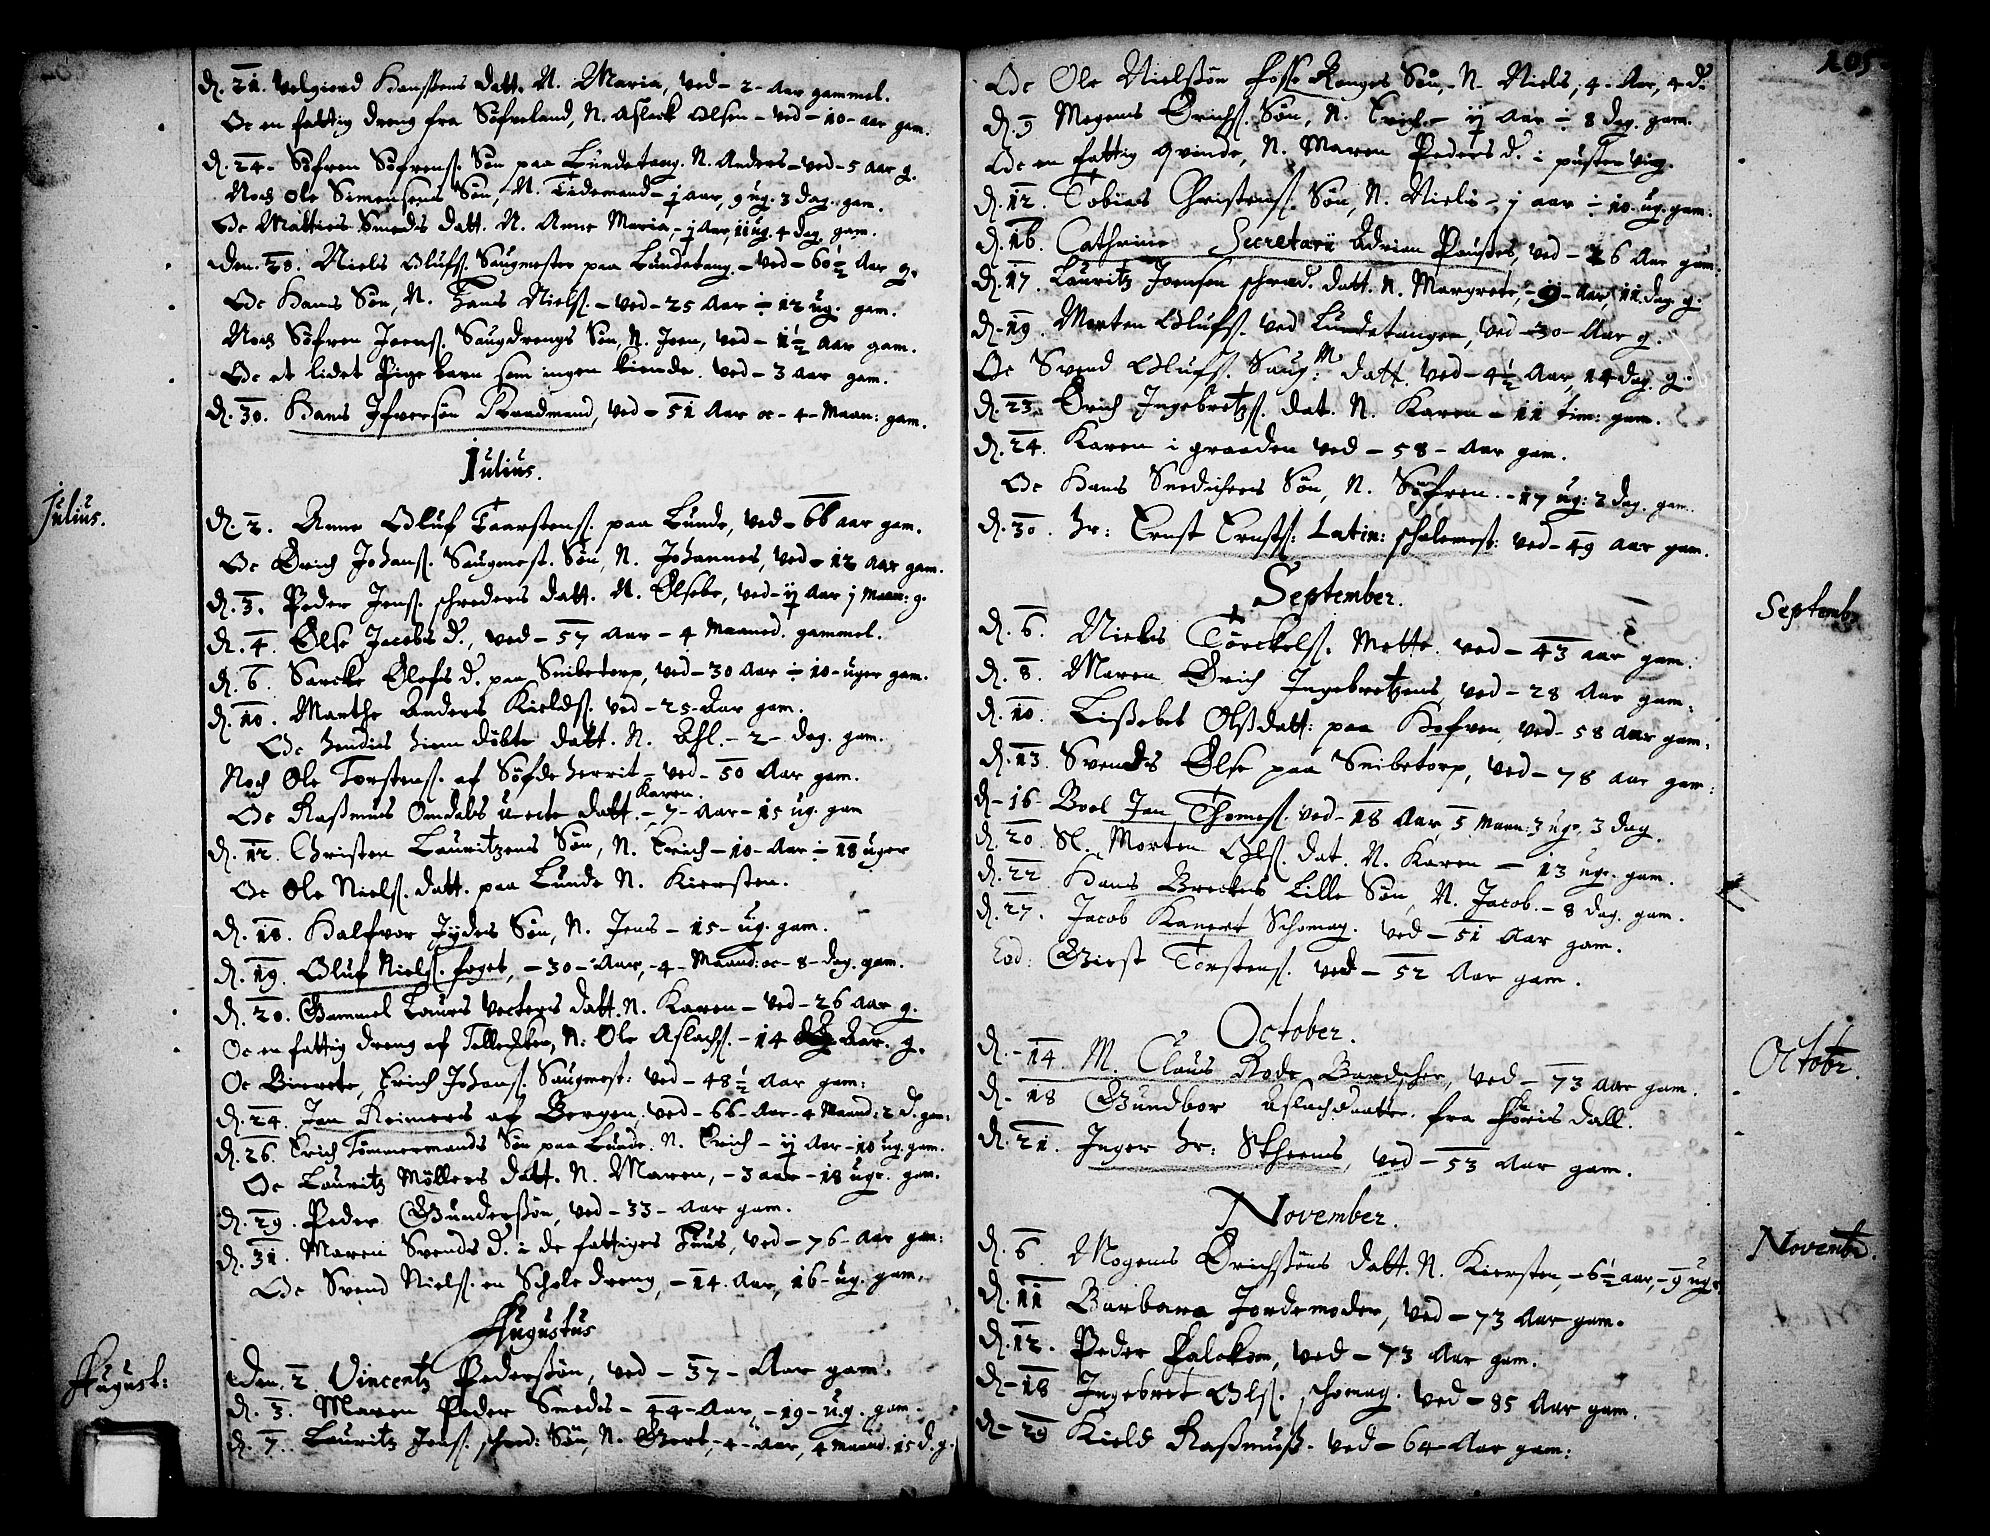 D. 21. Velgierd Hanssens datt. N. Maria, ved - 2 - Aar gammel.
Oc en fattig dreng fra Söfreland, N. Aslack Olsen - ved - 10 - aar gam.
D. 24. Söfren Söfrens. Sön paa Lundetang. N. Anders - ved - 5 aar g.
Noch Ole Simensens Sön, N. Tidemand - j aar, 9 ug. 3 dag. gam.
Oc Matties Smeds datt. N. Anne Maria, - j Aar, 11 ug. 4 dag. gam.
Den. 28. Niels Olufs. Saugmester paa Lundetang. - ved - 60 ½ Aar g.
Oc Hans Sön, N. Hans Niels. - ved - 25 Aar ÷ 12 ug. gam.
Noch Söfren Joens. Saugdrengs Sön, N. Joen, ved - 1 ½ Aar gam.
Oc et lidet Pige barn som ingen kiende. ved - 3 Aar gam.
D. 30. Hans Ifversön Raadmand, ved - 51 Aar oc - 4 - Maan: gam.
Julius.
Julius.
D. 2. Anne Oluf Taarstens. paa Lunde, ved - 66 aar gam.
Oc Erich Johans. Saugmest. Sön, N. Johannes, ved - 12 Aar gam.
D. 3. Peder Jens. schreders datt. N. Elsebe, ved - ij Aar j Maan: g.
D. 4. Else Jacobs d., ved - 57 Aar - 4 Maaned. gammel.
D. 6. Sarcke Olefs d. paa Snibetorp, ved - 30 Aar ÷ 10 - uger gam.
D. 10. Marthe Anders Kields. ved - 25 - Aar gam.
Oc hendis hiem döbte datt. N. Ahl. - 2 - dag. gam.
Noch Ole Torstens. af Söfde herrit - ved - 50 Aar gam.
Oc Rasmus Omdals u-ecte datt. Karen. - 7 - Aar - 15 ug. gam
D. 12. Christen Lauritzens Sön, N. Erich - 10 - Aar ÷ 18 uger
Oc Ole Niels. datt. paa Lunde N. Kiersten.
D. 18. Halfvor Jydes Sön, N. Jens - 15 - ug. gam.
D. 19. Oluf Niels. foget, - 30 - Aar, - 4 - Maand: oc - 8 - dag. gam.
D. 20. Gammel Lauris Vecters datt. N. Karen - ved - 26 Aar g.
Oc en fattig dreng af Tellechen, N: Ole Aslachs. - 14 Aar. g.
Oc Bierete, Erich Johans. Saugmest: ved - 48 ½ Aar gam:
D. 24. Jan Reimers af Bergen, ved - 66 - Aar - 4 Maand: 2 d. gam:
D. 26. Erich Tömmermands Sön paa Lunde. N. Erich - ij Aar - 10 ug. gam.
Oc Lauritz Möllers datt. N. Maren, - 3 aar - 18 uge. gam.
D. 29. Peder Gundersön, ved - 33 - Aar gam.
D. 31. Maren Svends d. i de fattiges Huus, ved - 76 - Aar gam:
Oc Svend Niels. en Schole dreng, - 14 - Aar, 16 - ug. gam.
Augustus
August:
Den. 2 Vincentz Pedersön, ved - 37 - Aar gam.
D. 3. Maren Peder Smeds - 44 - Aar, - 19 - ug. gam.
D. 7. Lauritz Jens. schred: Sön, N. Gert, - 4 - Aar, 4 Maand. 15 d. g.
105
Oc Ole Nielsön Sön, - N. Niels, 4 - Aar, 4 d.
D. 9 Mogens Erichs. Sön, N. Erich - ij Aar ÷ 8 dag. gam.
Oc en fattig qvinde, N. Maren Peders d. i
D. 12. Tobias Christens. Sön, N. Niels - j aar ÷ 10. ug. gam:
D. 16. Cathrine Secretarii Adrian Pauses, ved - 26 Aar gam:
D. 17. Lauritz Joensen schred. datt. N. Margrete, - 9 - Aar, 11. dag. g.
D. 19. Morten Olufs. ved Lundetangen, ved - 30 - Aar g.
Oc Svend Olufs. Saug: M. datt. ved - 4 ½ Aar, 14 dag. g.
D. 23. Erich Ingebretzs. dat. N. Karen - 11 tim: gam.
D. 24. Karen i graaden ved - 58 - Aar gam.
Oc Hans Snedichers Sön, N. Söfren. - 17 ug: 2 dag. gam.
D. 30. Hr: Ernst Ernsts: Latin: scholemest: ved - 49 aar gam.
September.
Septembr
D. 6. Niels Törckels. Mette ved - 43 aar gam.
D. 8. Maren Erich Ingebretzens, ved - 28 Aar gam.
D. 10. Lisebet Olsdatt: paa Hofven, ved - 58 aar gam:
D. 13. Svends Else paa Snibetorp, ved - 78 aar gam:
D. 16. Boel Jan Thomes. ved - 18 Aar, 5 Maan: 3 uge, 3 dag.
D. 20. Sl. Morten Ols. dat. N. Karen - 13 uge. gam.
D. 22. Hans Breckes Lille Sön, N. Jacob. - 8 dag. gam.
D. 27. Jacob Kanert Schomag. ved - 51 Aar gam.
Eod: Giest Torstens. ved - 52 Aar gam.
October.
Octobr.
D. 14. M. Claus Rode Bardscher, ved - 73 aar gam.
D. 18 Gundbor Aslachdaatter. fra Höris dall.
D. 21. Inger Hr: Stheens, ved - 53 Aar gam.
November.
Novemb.
D. 6. Mogens Erichsöns datt. N. Kiersten, - 6 ½ aar, - 9 uge.
D. 11 Barbara Jordemoder, ved - 73 Aar gam.
D. 12. Peder ved - 73 Aar gam.
D. 18 Ingebret Ols. schomag. ved - 85 Aar gam.
D. Kield Rasmuss. ved - 64 - Aar gam: